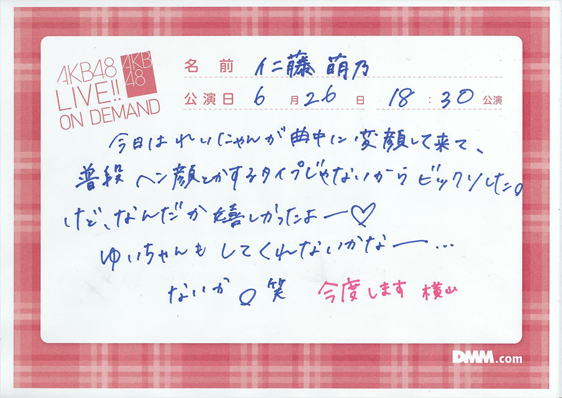 AKB48
LIVE!!
ON DEMAND
AKB
48
名前 仁藤萌乃
公演日 6月26日 18:30公演
今日はれいにゃんが曲中に変顔して来て、
普段ヘン顔とかするタイプじゃないからビックリした。
けど、なんだか嬉しかったよー♡
ゆいちゃんもしてくれないかなー…
ないか。笑 今度します 横山
DMM.com